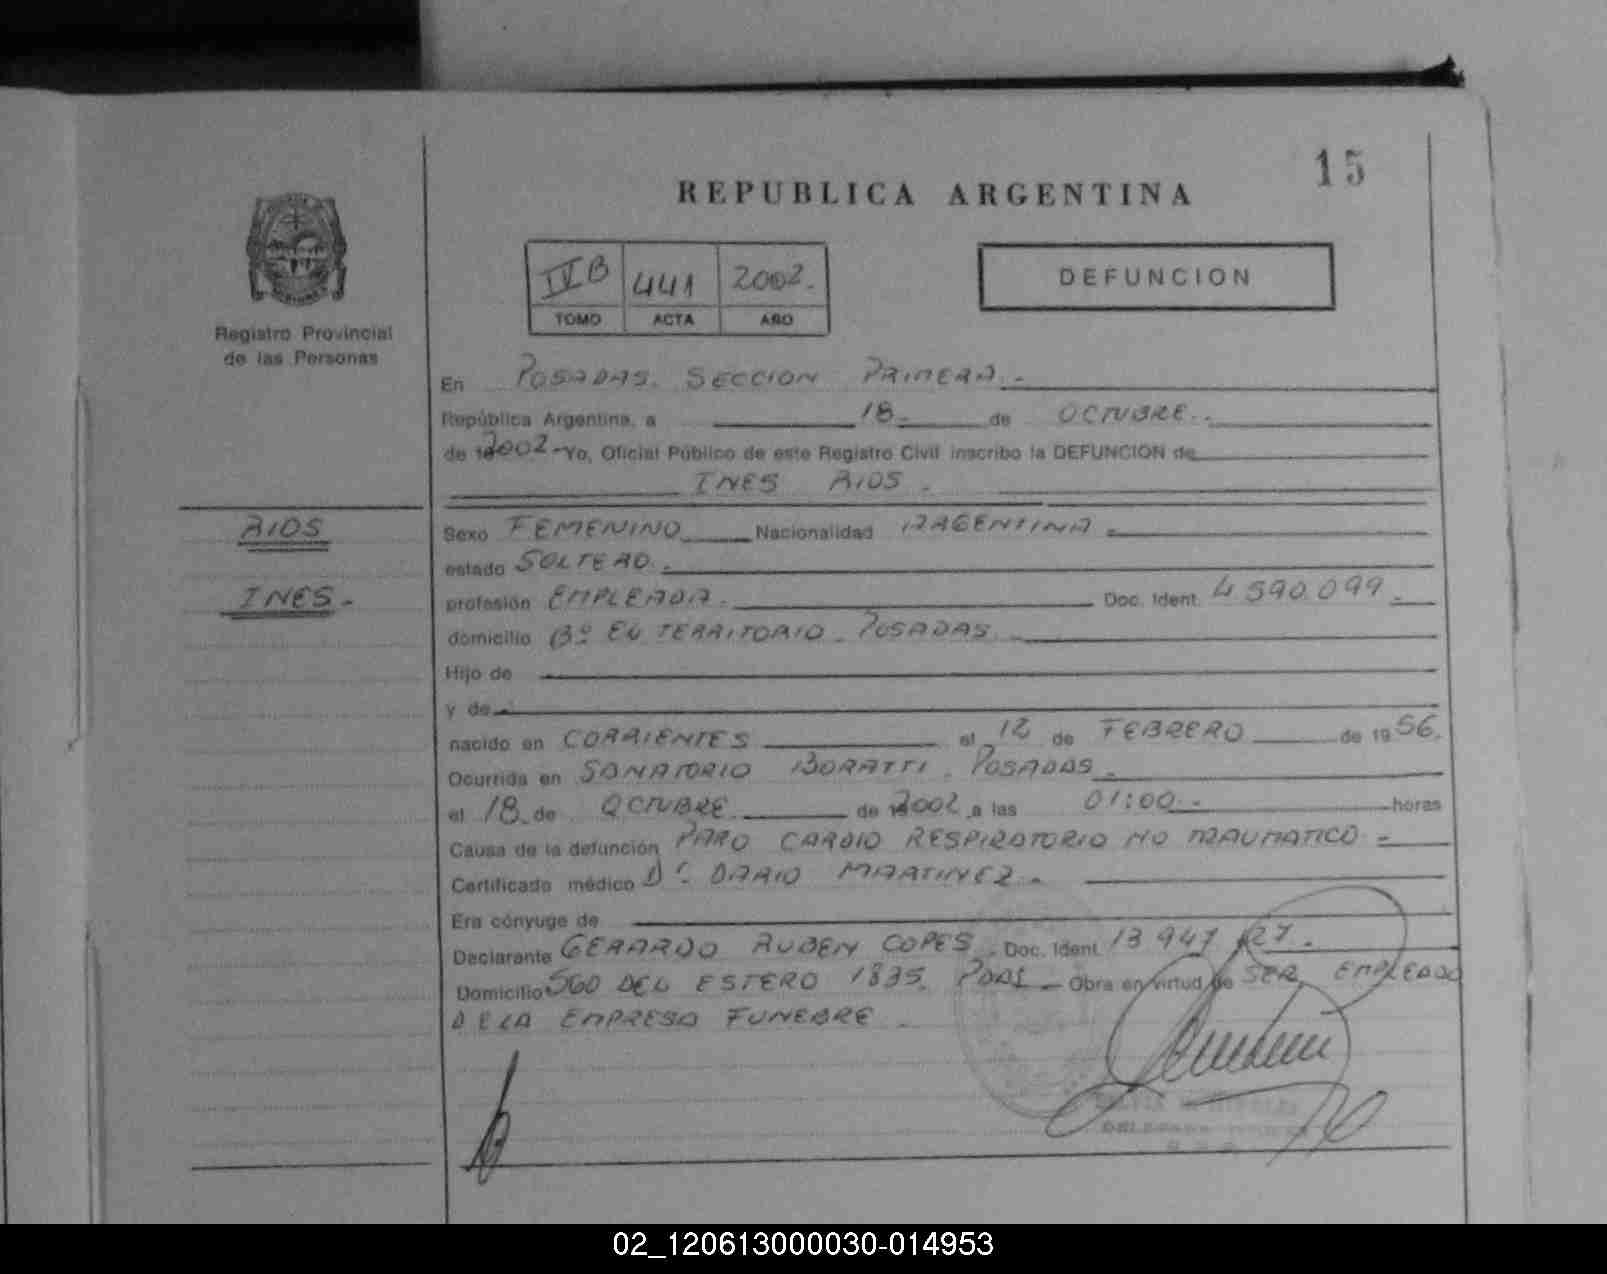 15
REPUBLICA ARGENTINA
IVB 441 2002.
TOMO ACTA AÑO
DEFUNCION
Registro Provincial
de las Personas
En POSADAS. SECCION PRIMERA.-
República Argentina, a 18 de OCTUBRE.
de 2002-Yo, Oficial Público de este Registro Civil inscribo la DEFUNCION de
INES RIOS.
RIOS
INES.-
Sexo FEMENINO Nacionalidad ARGENTINA.
estado SOLTERO.
profesión EMPLEADA. Doc. Ident. 4 590.099.
domicilio Bº EL TERRITORIO. POSADAS.
Hijo de
y de
nacido en CORRIENTES el 12 de FEBRERO de 1956.
Ocurrida en SANATORIO BORATTI. POSADAS.
el 18 de OCTUBRE de 2002 a las 01:00.- horas
Causa de la defunción PARO CARDIO RESPIRATORIO NO TRAUMATICO-
Certificado médico Dr. DARIO MARTINEZ.-
Era cónyuge de
Declarante GERARDO RUBEN COPES. Doc. Ident. 13 947 127.
Domicilio SGO DEL ESTERO 1835. Obra en virtud de SER EMPLEADO
DE LA EMPRESA FUNEBRE.
02_120613000030-014953